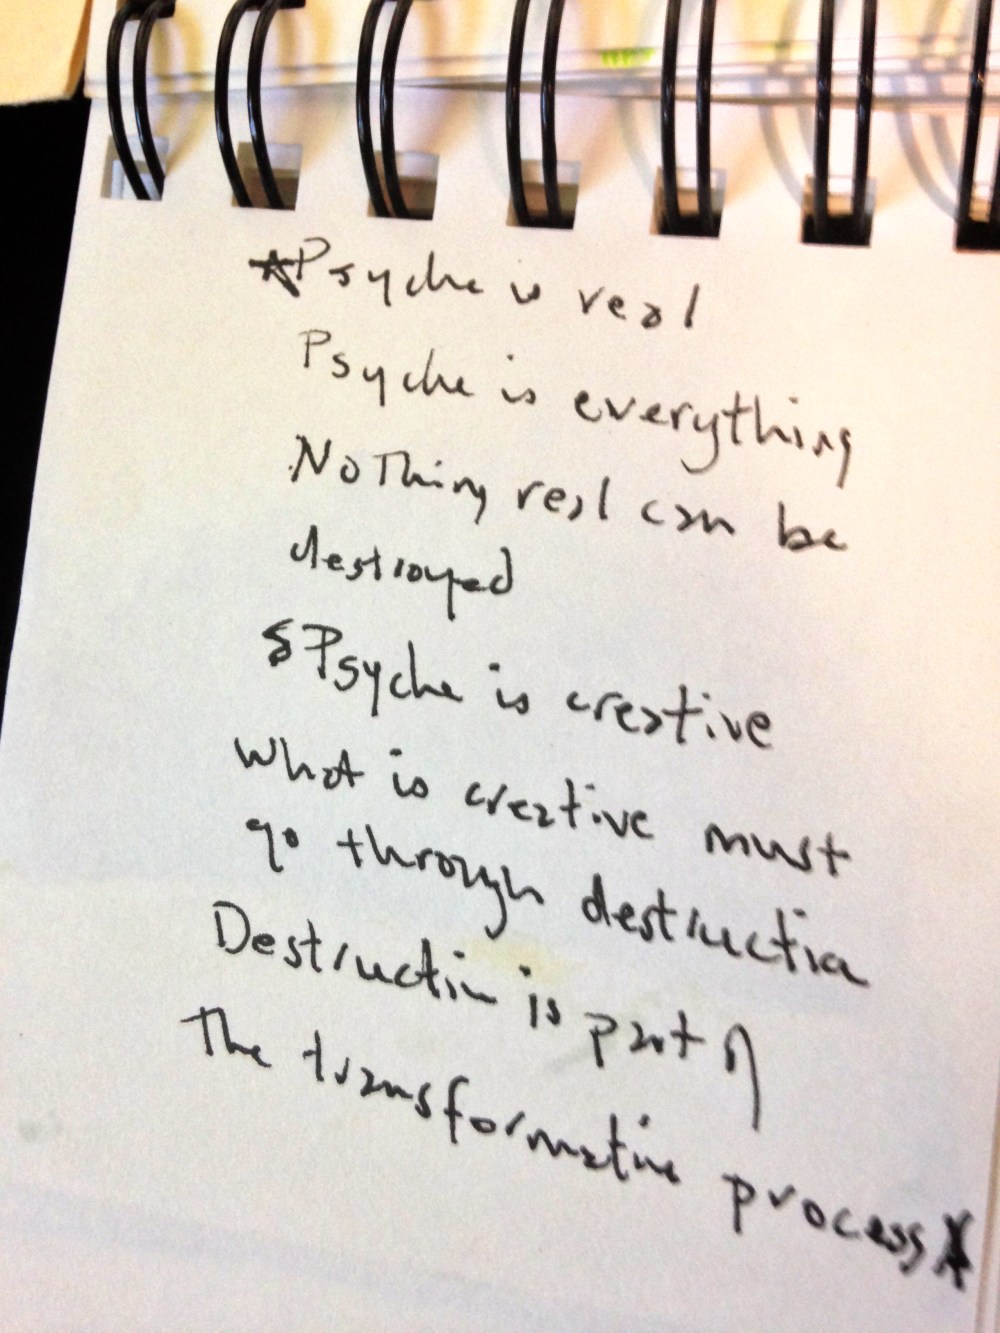 ★Psyche is real
Psyche is everything
Nothing real can be
destroyed
§Psyche is creative
what is creative must
go through destruction
Destruction is part of
The transformative process★